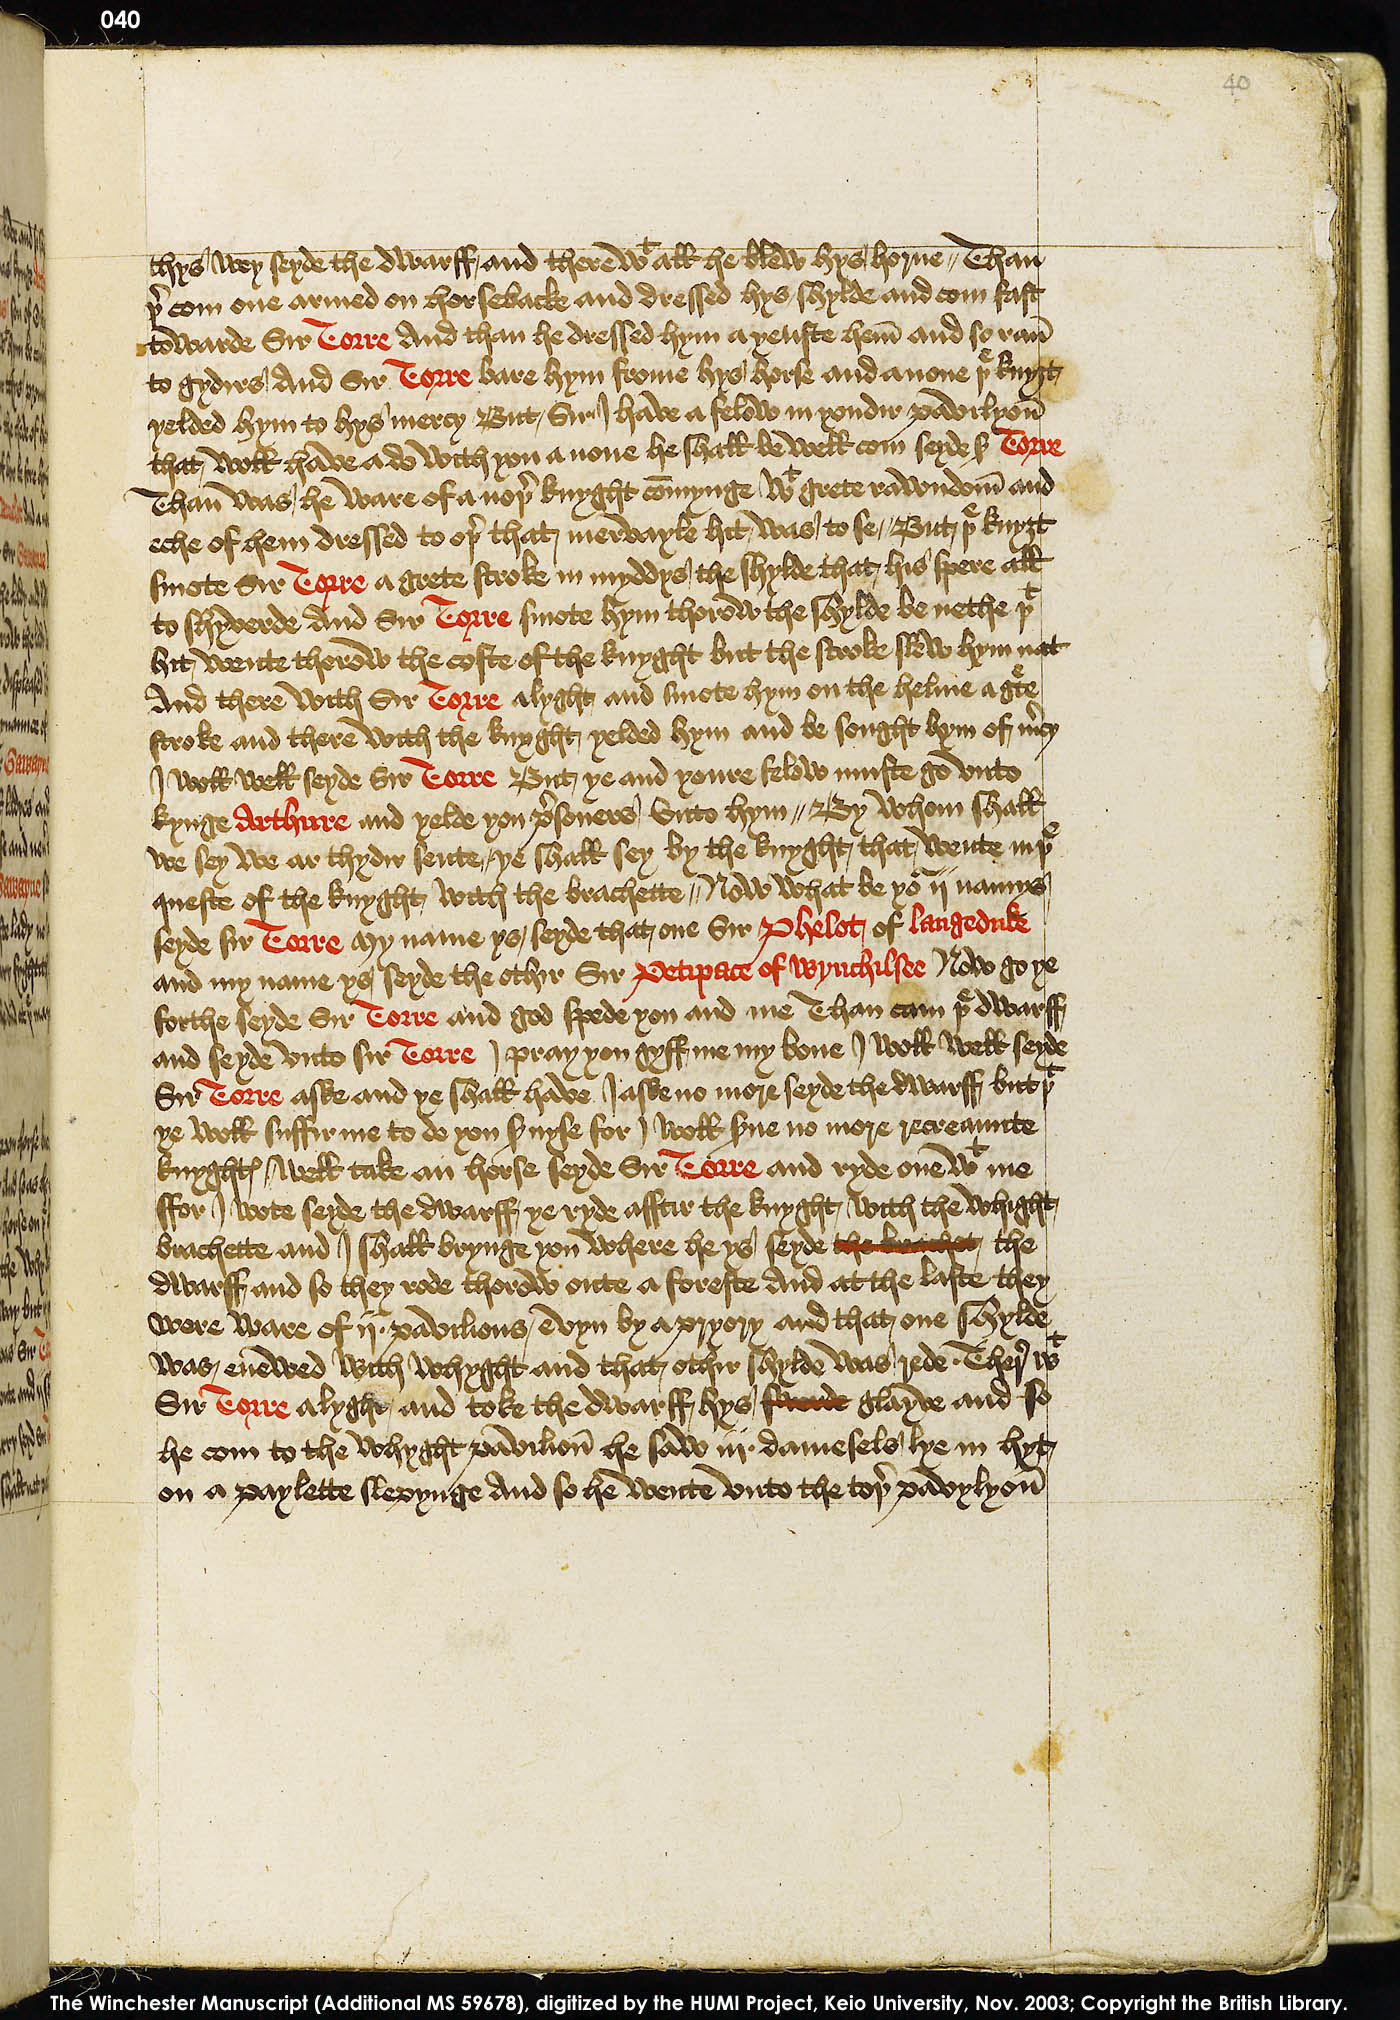 040
40
thys wey seyde the dwarff and therewᵗ all he blew hys horne // Than
þʳ com one armed on horsebacke and dressed hys shylde and com fast
towarde Sir Torre And than he dressed hym a yenste hem̄ and so ran̄
to gydirs And Sir Torre bare hym frome hys horse and anone þᵉ knyȝt
yelded hym to hys mercy But Sir I have a felow in yondir pavilyon̄
that woll have ado with you a none he shall be well com seyde sʳ Torre
Than was he ware of a noþʳ knyght cōmynge wᵗ grete rawndom̄ and
eche of hem dressed to oþʳ that mervayle hit was to se // But þᵉ knyȝt
smote Sir Torre a grete stroke in myddys the shylde that his spere all
to shyverde And Sir Torre smote hym thorow the shylde be nethe þᵗ
hit wente thorow the coste of the knyght but the stroke slew hym nat
And there with Sir Torre alyght and smote hym on the helme a gᵉte
stroke and therewith the knyght yelded hym and be sought hym of mʳcy
I woll well seyde Sir Torre But ye and youre felow muste go vnto
kynge Arthure and yelde you pʳsoners vnto hym // By whom shall
we sey we ar thydir sente / ye shall sey by the knyght that wente in þᵉ
queste of the knyght with the brachette // Now what be yoʳ ij namys
seyde sir Torre My name ys seyde that one Sir Phelot of langeduke
and my name ys seyde the othir Sir Petipace of wynchilsee Now go ye
forthe seyde Sir Torre and god spede you and me Than cam þᵉ dwarff
and seyde vnto sir Torre I pray you gyff me my bone I woll well seyde
Sir Torre aske and ye shall have I aske no more seyde the dwarff but þᵗ
ye woll suffir me to do you sʳuyse for I woll sʳue no more recreaunte
knyghtꝭ / Well take an horse seyde Sir Torre and ryde one wᵗ me
ffor I wote seyde the dwarff ye ryde afftir the knyght with the whight
brachette and I shall brynge you where he ys seyde the brachet the
dwarff and so they rode thorow oute a foreste And at the laste they
were ware of ij. pavilions / evyn by a pryory and that one shylde
was enewed with whyght and that othir shylde was rede. Therʳ wᵗ
Sir Torre alyght and toke the dwarff hys glayve and so
he com to the whyght pavilion̄ he saw iij. damesels lye in hyt
on a paylette slepynge And so he wente vnto the toþʳ pavylyon̄
The Winchester Manuscript (Additional MS 59678), digitized by the HUMI Project, Keio University, Nov. 2003; Copyright the British Library.